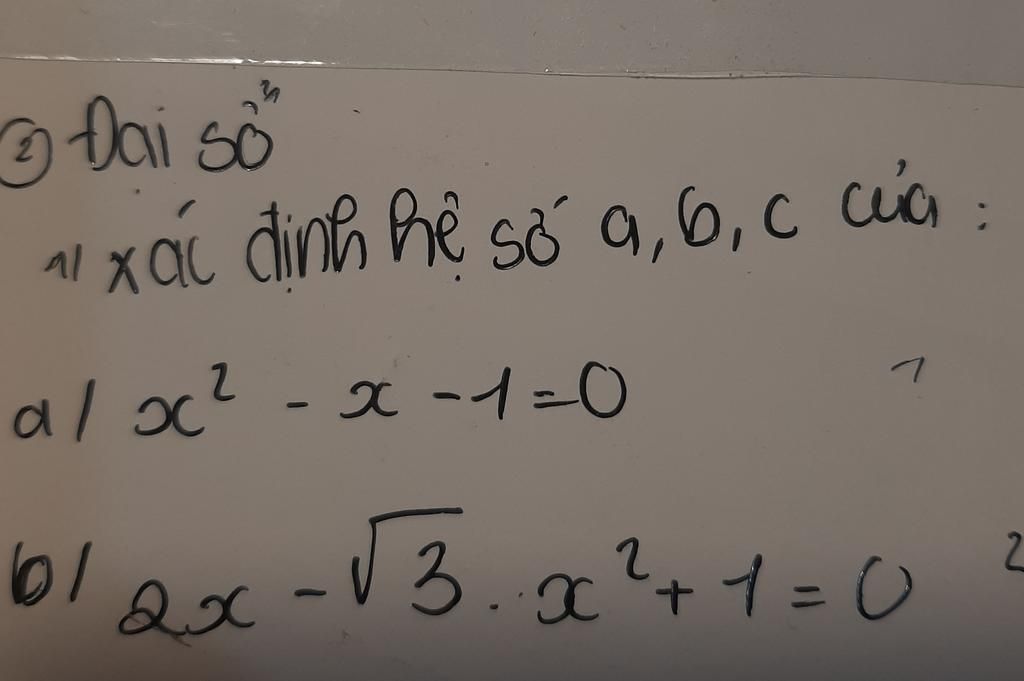 ② Đại số
1/ xác định hệ số a, b, c của :
a/ x² - x - 1 = 0
b/ 2x - √3 . x² + 1 = 0